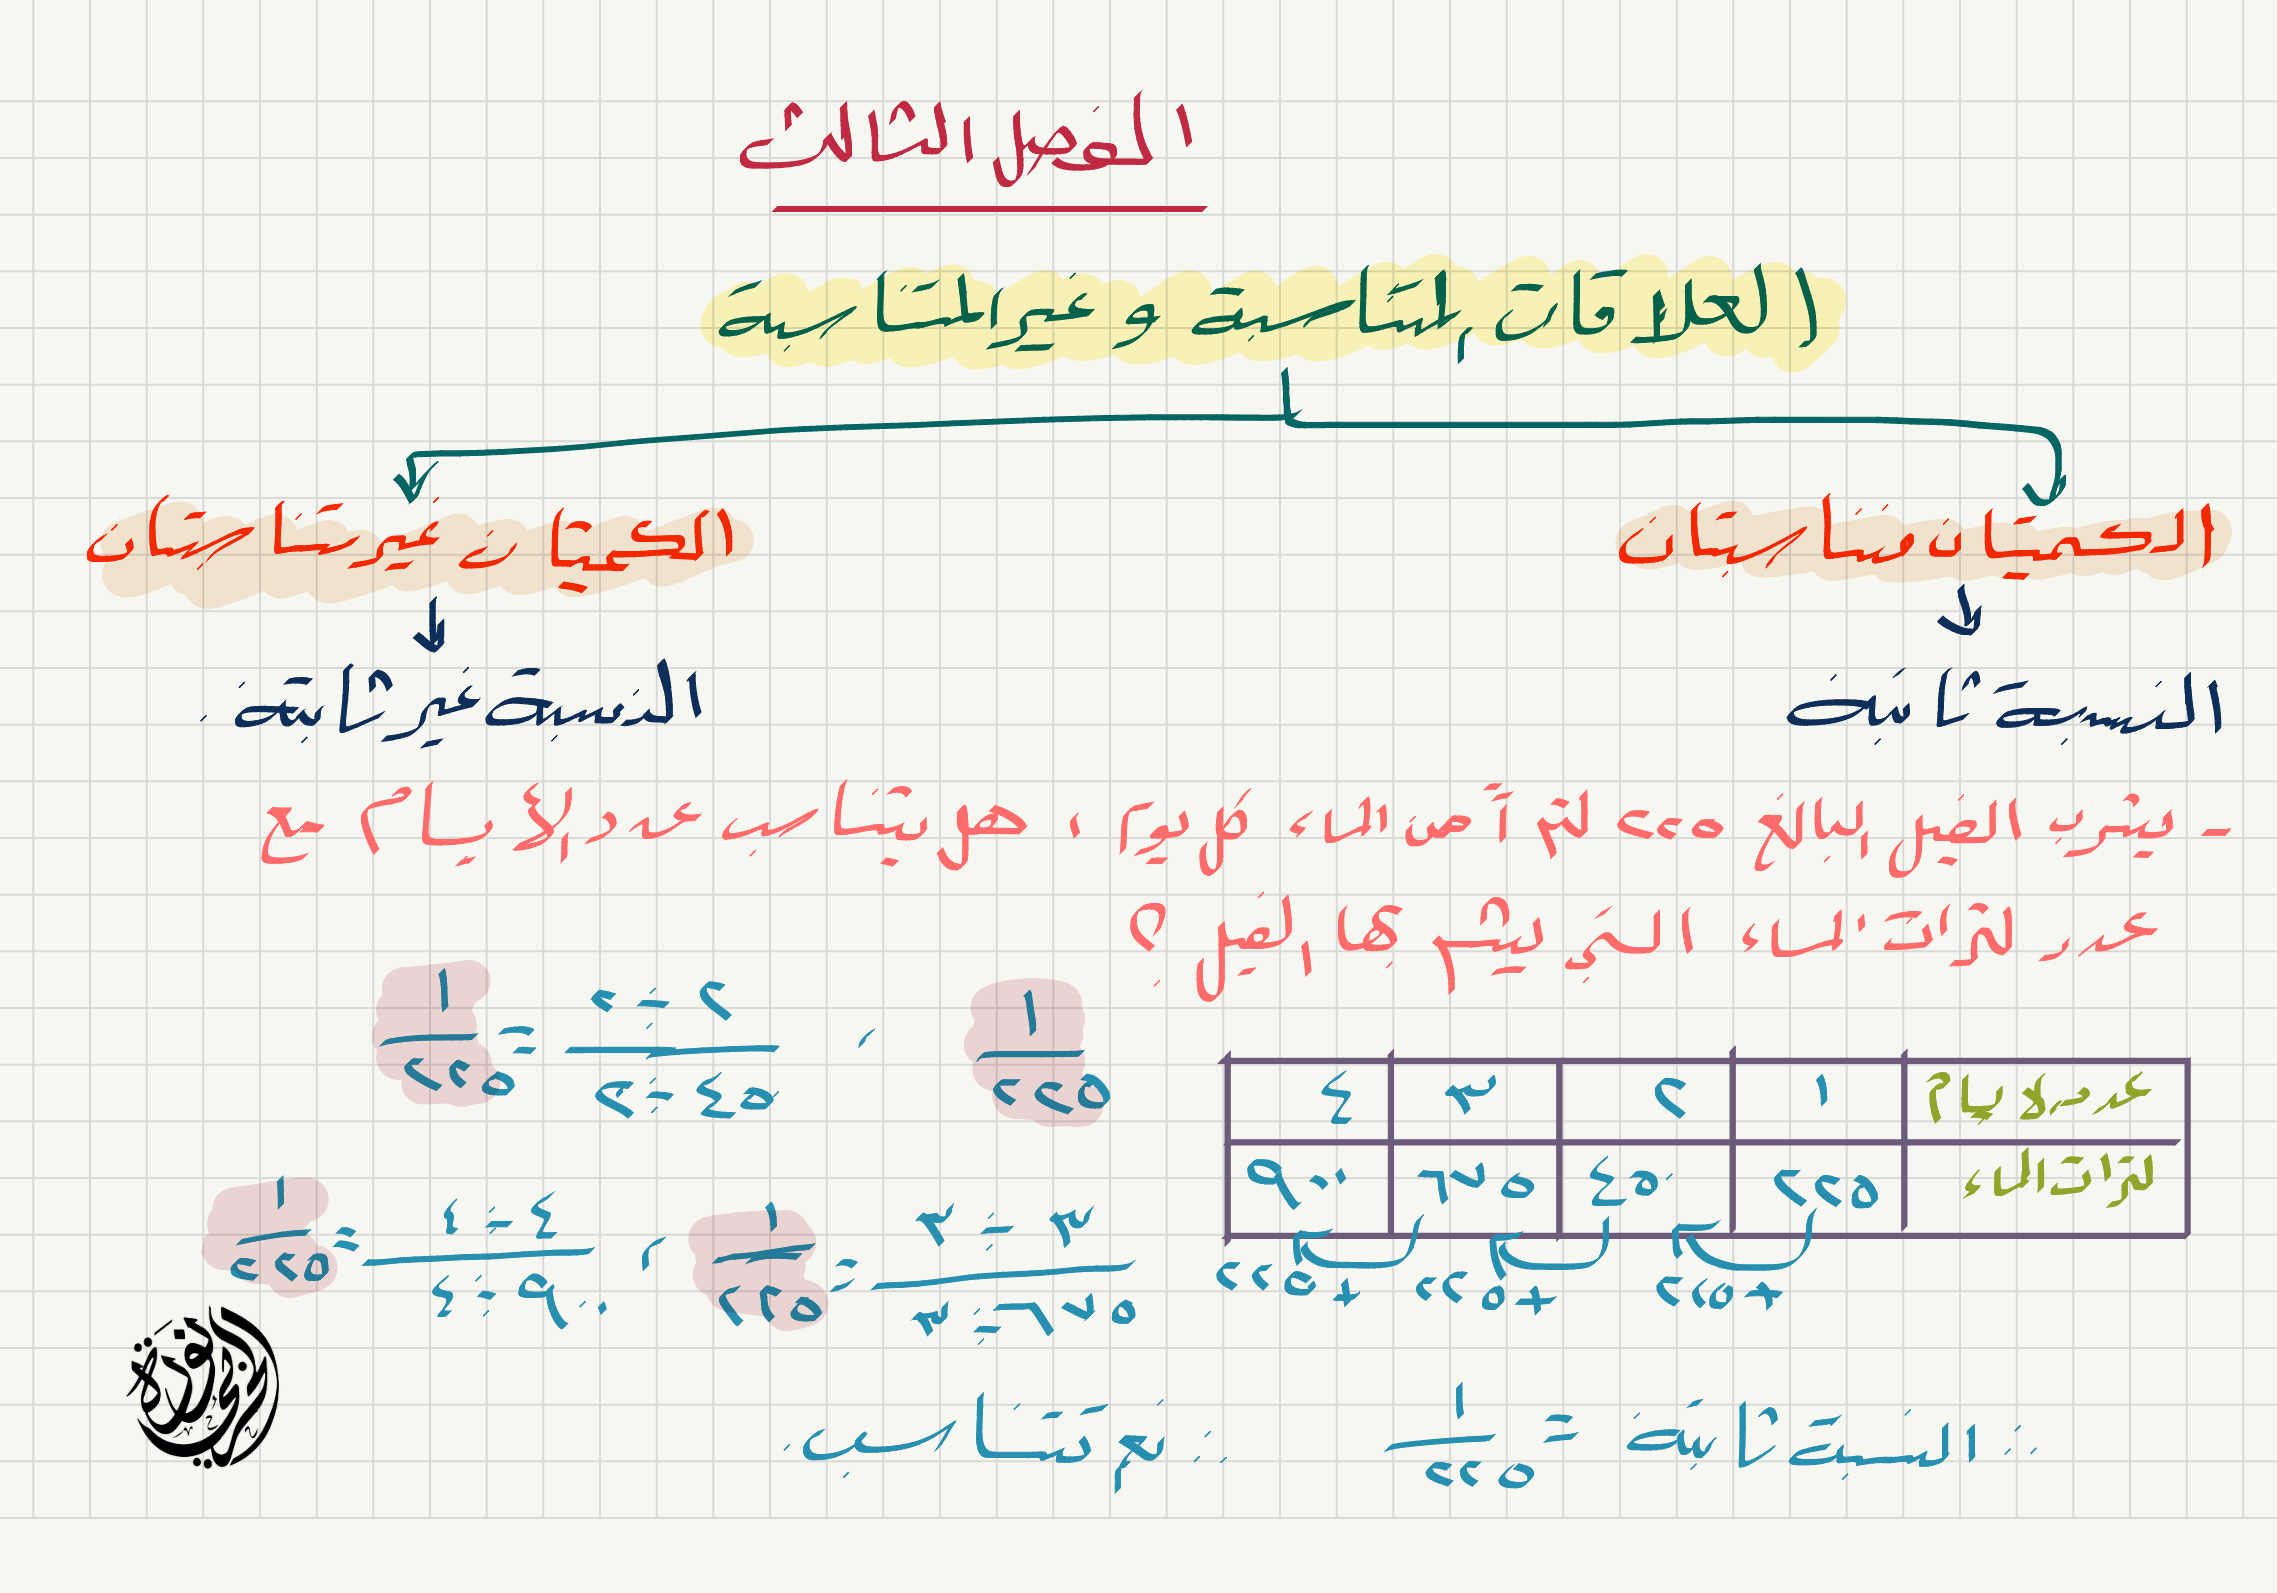 الفصل الثالث
العلاقات المتناسبة و غير المتناسبة
الكميتان متناسبتان
الكميتان غير متناسبتان
النسبة ثابتة
النسبة غير ثابتة .
- يشرب الفيل البالغ ٢٢٥ لترًا من الماء كل يوم ، هل يتناسب عدد الأيام مع
عدد لترات الماء التي يشربها الفيل ؟
عدد الأيام ١ ٢ ٣ ٤
لترات الماء ٢٢٥ ٤٥٠ ٦٧٥ ٩٠٠
+٢٢٥ +٢٢٥ +٢٢٥
١/٢٢٥ ، ٢ ÷ ٢ / ٤٥٠ ÷ ٢ = ١/٢٢٥
٣ ÷ ٣ / ٦٧٥ ÷ ٣ = ١/٢٢٥ ، ٤ ÷ ٤ / ٩٠٠ ÷ ٤ = ١/٢٢٥
∴ النسبة ثابتة = ١/٢٢٥ ∴ نعم تتناسب .